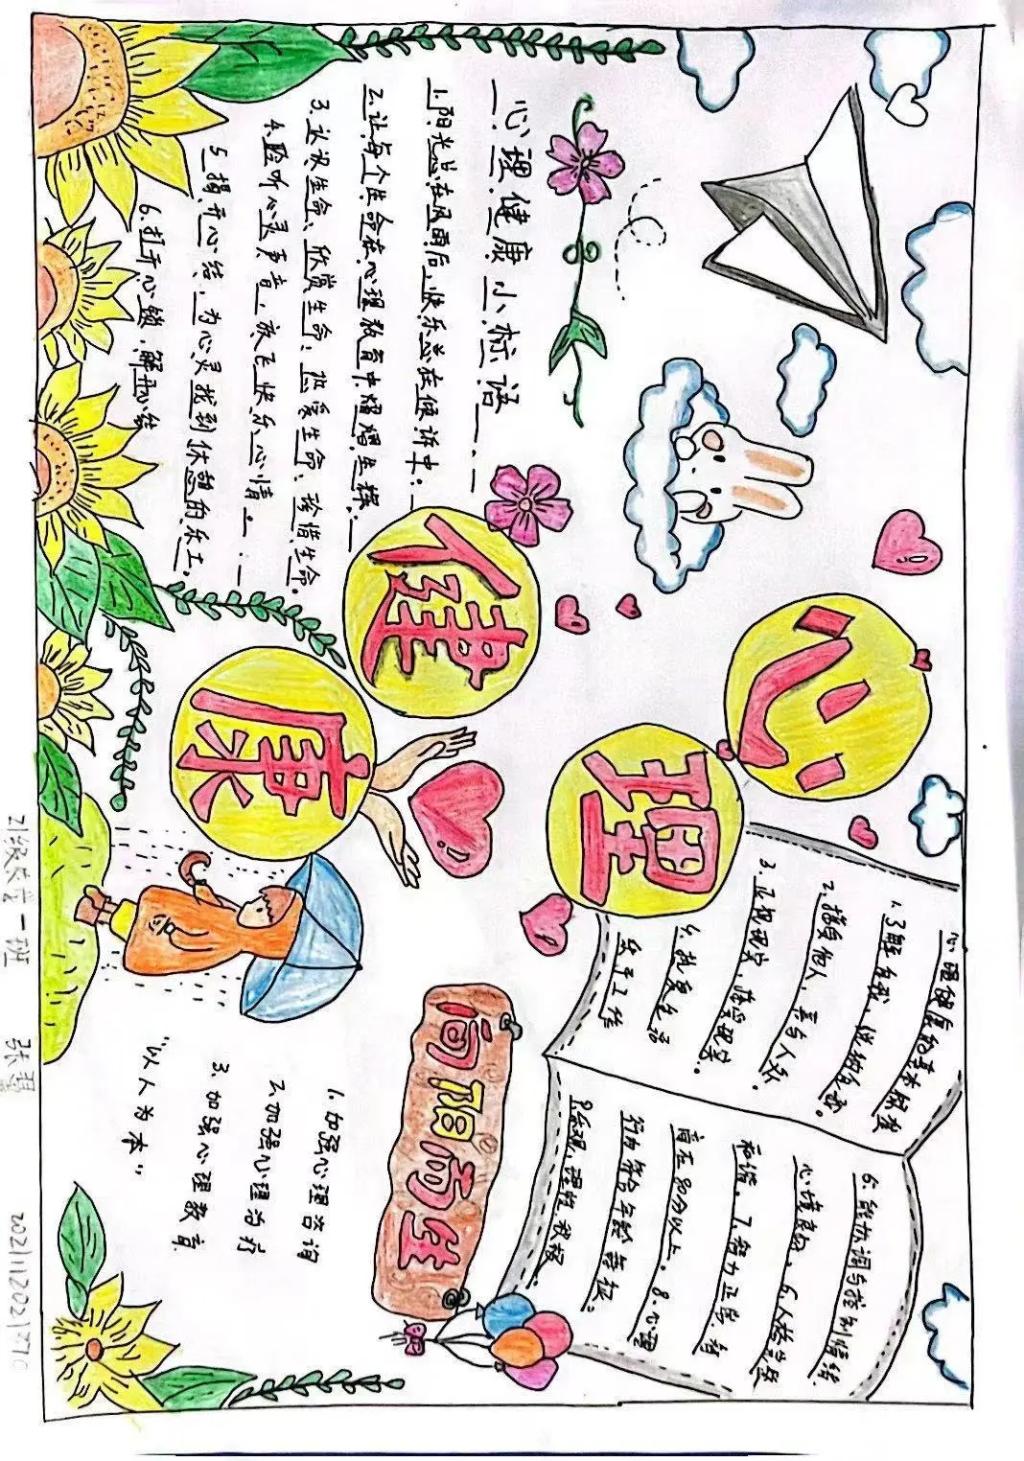 心理健康
心理健康小标语
1.阳光总在风雨后，快乐总在倾诉中。
2.让每个生命在心理教育中熠熠生辉。
3.认识生命、欣赏生命、热爱生命、珍惜生命。
4.聆听心灵声音，放飞快乐心情。
5.揭开心结，为心灵找到休憩的乐工。
6.打开心锁，解开心结
心理健康的基本标准
1.了解自我、悦纳自我。
2.接受他人，善与人处
3.正视现实，接受现实。
4.热爱生活
乐于工作
6.能协调与控制情绪
心境良好。6.人格完整
和谐。7.智力正常，智
商在80分以上。8.心理
行为符合年龄特征。
向阳而生
1.加强心理咨询
2.加强心理治疗
3.加强心理教育
"以人为本"
21级大学一班